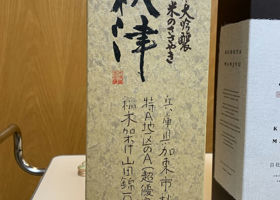 大吟醸
米のささやき
秋津
兵庫県加東市
特A地区のA超優
稲木架け山田錦
KUBOTA